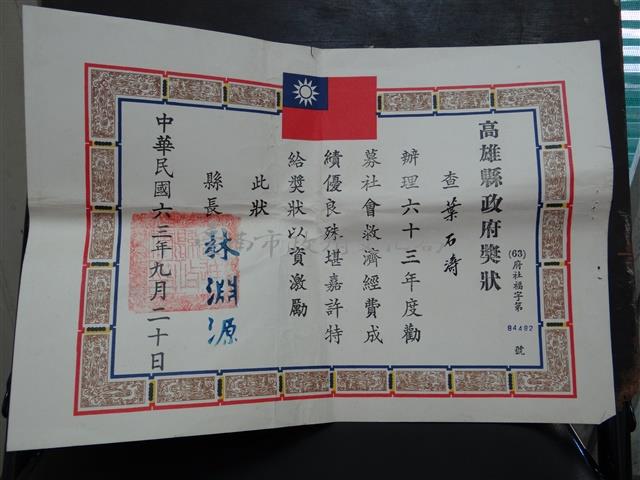 高雄縣政府獎狀
(63)府社福字第84492號
查葉石濤
辦理六十三年度勸
募社會救濟經費成
績優良殊堪嘉許特
給獎狀以資激勵
此狀
縣長林淵源
中華民國六三年九月二十日